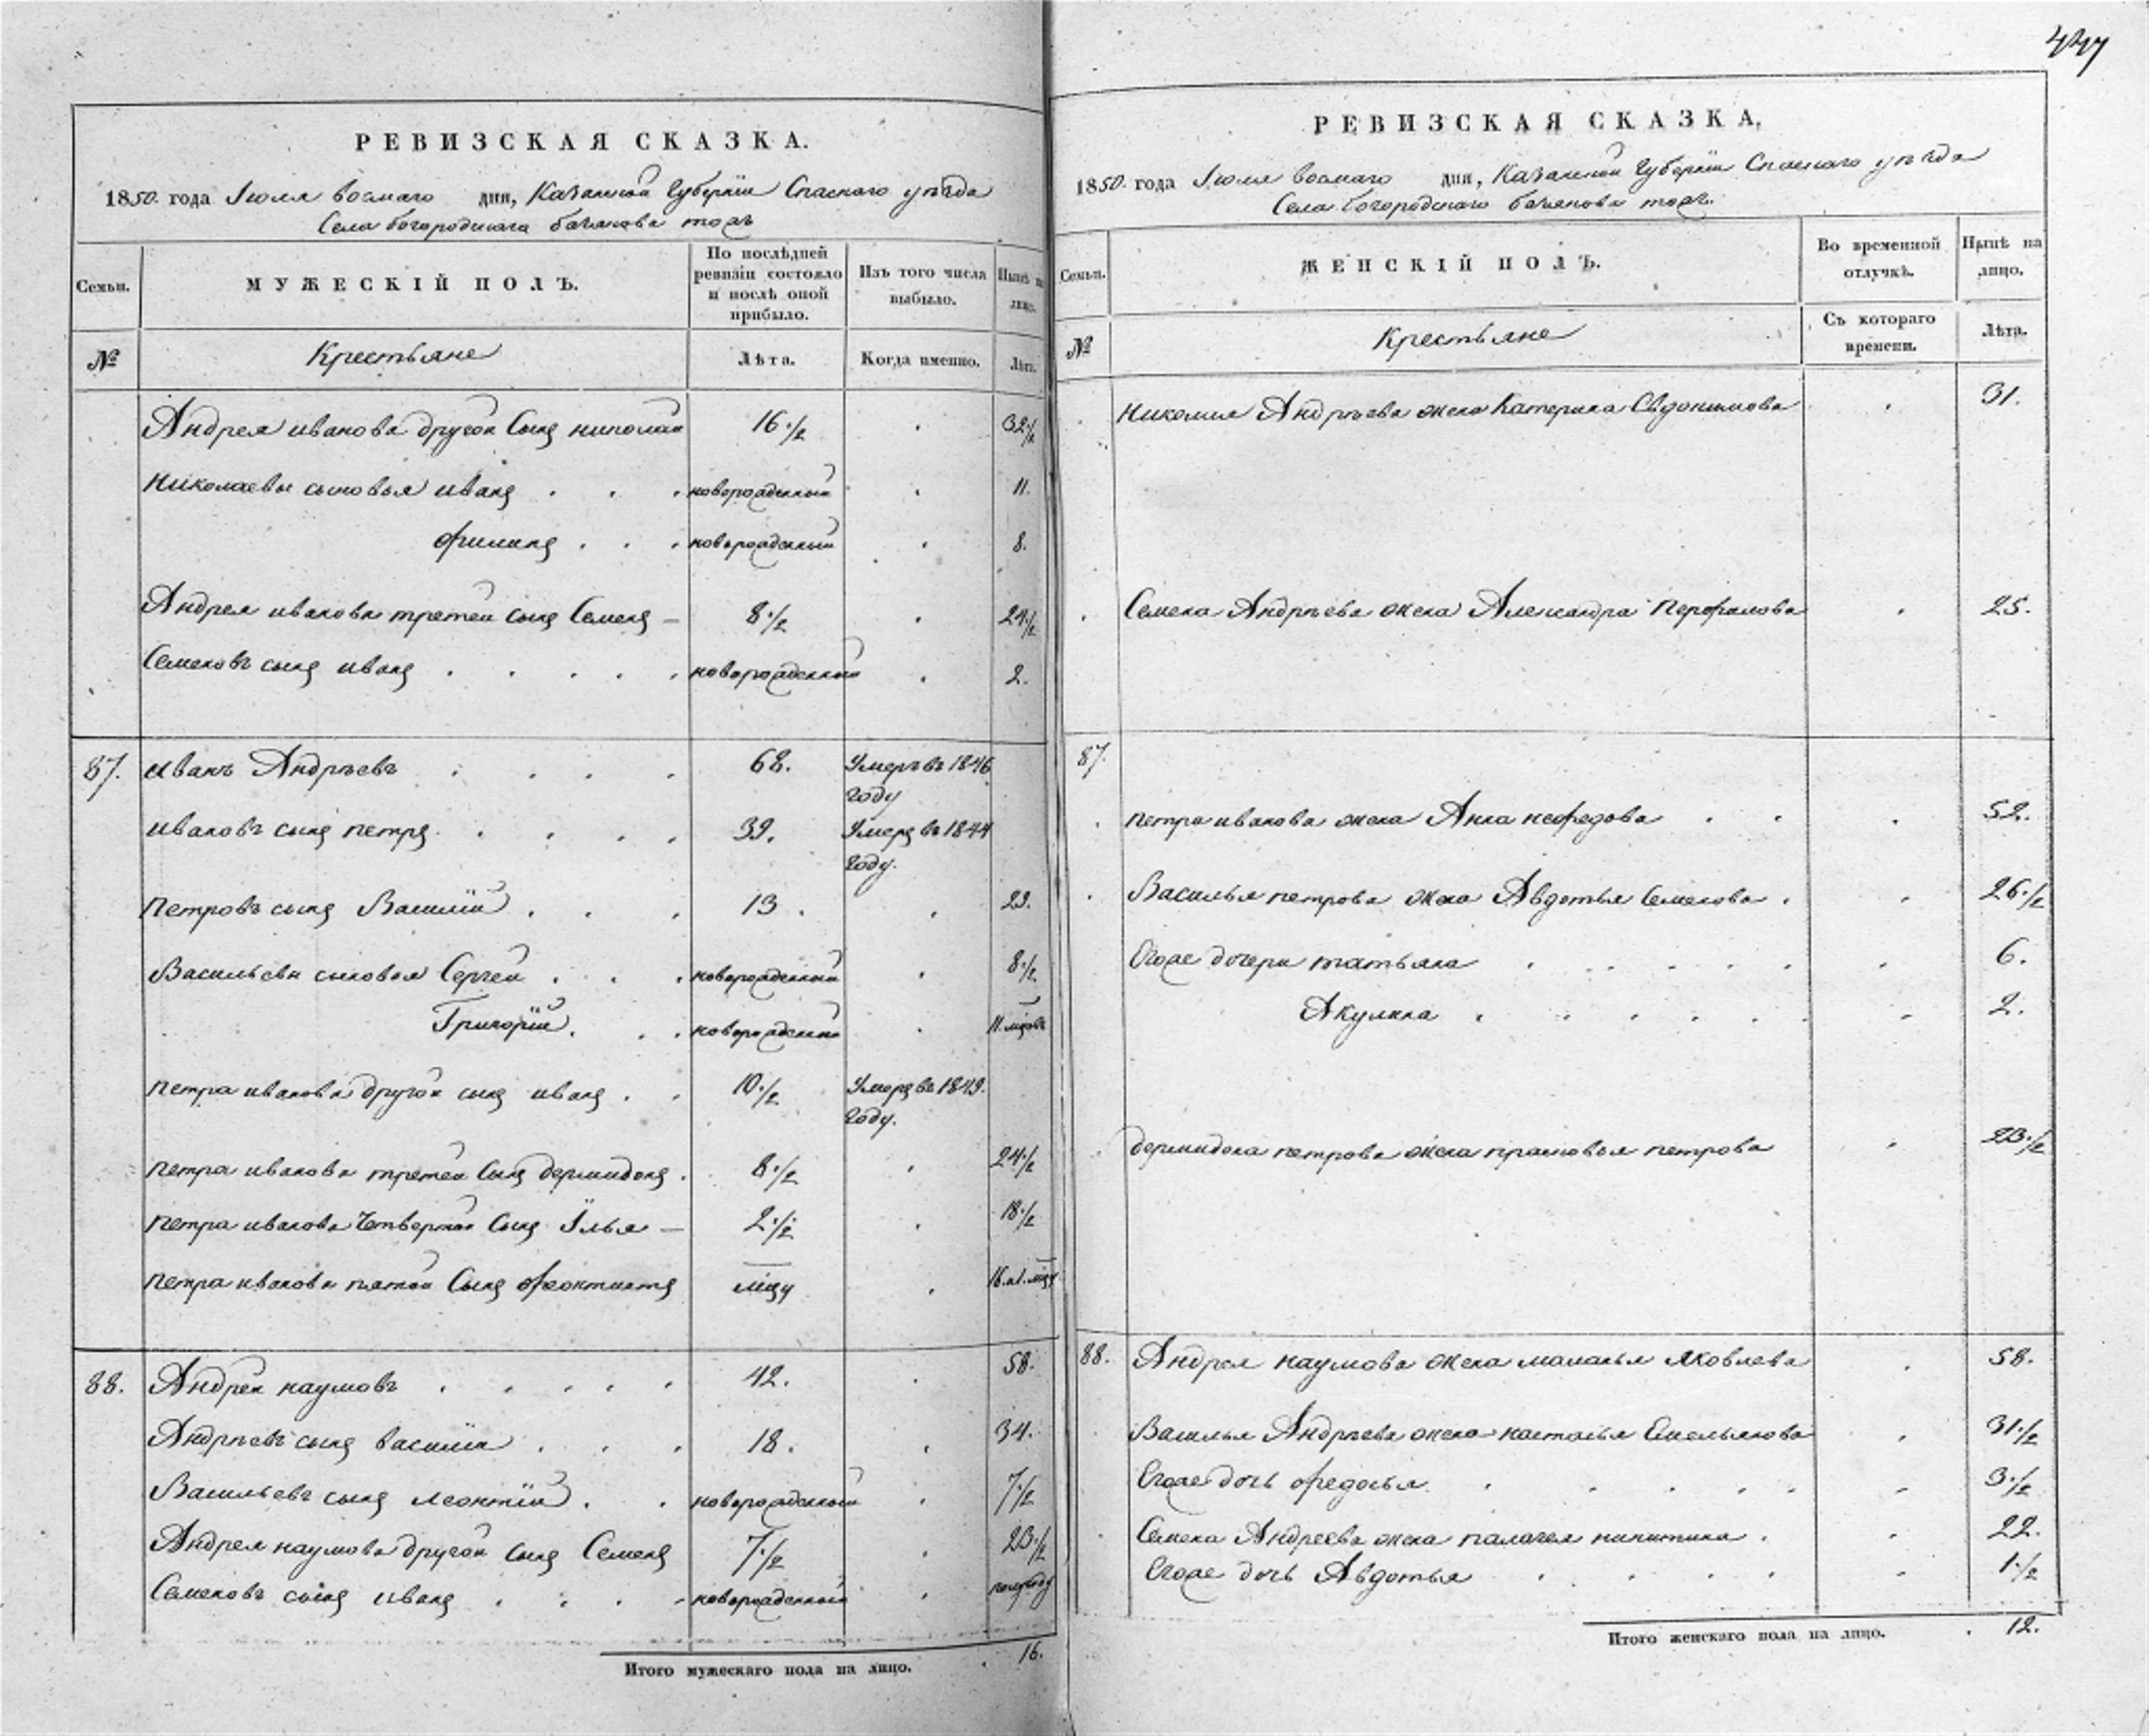 447
РЕВИЗСКАЯ СКАЗКА.
1850. года Июля восмаго дня, Казанской Губернии Спаскаго уѣзда
Села богородскаго тожъ
Семьи. МУЖЕСКІЙ ПОЛЪ. По послѣдней ревизіи состояло и послѣ оной прибыло. Изъ того числа выбыло. Нынѣ на лицо.
№ Крестьяне Лѣта. Когда именно. Лѣта.
Андрея иванова другой Сынъ николай 16.½ 32½
Николаевы сыновья иванъ новорожденный 11.
филипъ новорожденный 8.
Андрея иванова третей сынъ Семенъ — 8.½ 24½
Семеновъ сынъ иванъ новорожденный 2.
87. иванъ Андрѣевъ 68. Умеръ въ 1846 году
ивановъ сынъ петръ 39. Умеръ въ 1844 году.
петровъ сынъ Василій 13. 29.
Васильевы сыновья Сергей новорожденный 8.½
Григорій новорожденный 11. мцовъ
петра иванова другой сынъ иванъ 10.½ Умеръ въ 1849. году.
петра иванова третей Сынъ дермидонъ 8.½ 24½
петра иванова Четвертой Сынъ Илья — 2.½ 18.½
петра иванова пятой Сынъ феоктистъ мцу 16. и 1. мцу
88. Андрей наумовъ 42. 58.
Андрѣевъ сынъ василій 18. 34.
Васильевъ сынъ леонтій новорожденный 7.½
Андрея наумова другой сынъ Семенъ 7.½ 23.½
Семеновъ сынъ иванъ новорожденной полугоду
Итого мужескаго пола на лицо. 16.
РЕВИЗСКАЯ СКАЗКА.
1850. года Июля восмаго дня, Казанской Губерніи Спаскаго уѣзда
Села богородскаго тожъ.
Семьи. ЖЕНСКІЙ ПОЛЪ. Во временной отлучкѣ. Нынѣ на лицо.
№ Крестьяне Съ котораго времени. Лѣта.
Николая Андрѣева жена Катерина 31.
Семена Андрѣева жена Александра 25.
87.
петра иванова жена Анна нефедова 52.
Василья петрова жена Авдотья Семенова 26.½
Егоже дочери татьяна 6.
Акулина 2.
дермидона петрова жена прасковья петрова 23.½
88. Андрея наумова жена маланья яковлева 58.
Василья Андрѣева жена настасья Емельянова 31.½
Егоже дочь федосья 3.½
Семена Андреева жена палагея никитина 22.
Егоже дочь Авдотья 1.½
Итого женскаго пола на лицо. 12.